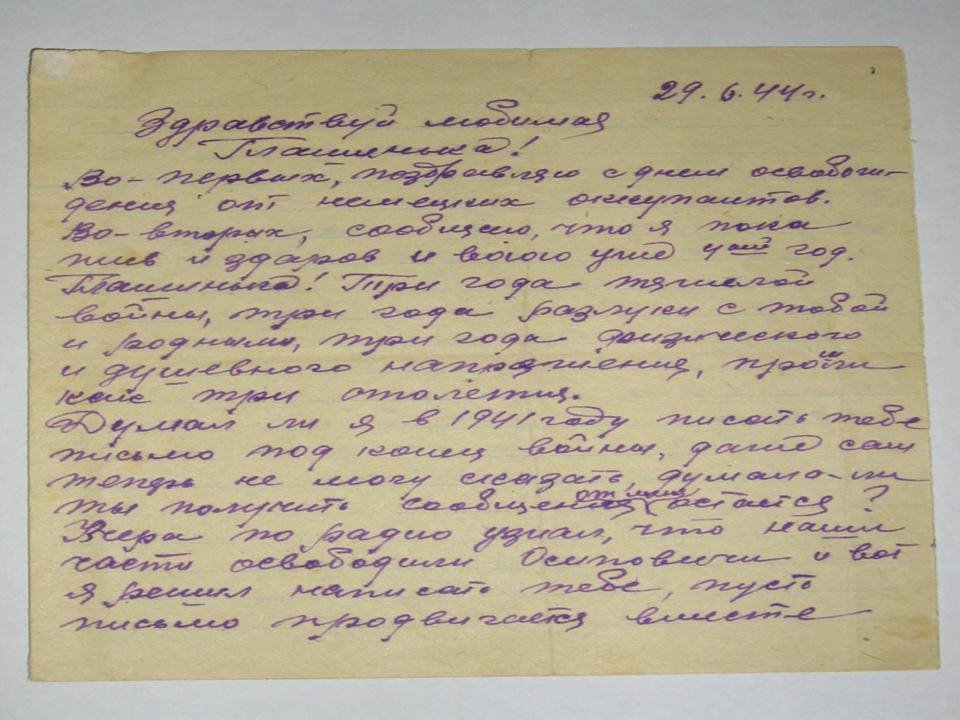 29.6.44г.
Здравствуй любимая
Глашинька!
Во-первых, поздравляю с днем освобож-
дения от немецких оккупантов.
Во-вторых, сообщаю, что я пока
жив и здаров и воюю уже 4ый год.
Глашинька! Три года тяжелой
войны, три года разлуки с тобой
и родными, три года физического
и душевного напряжения, прошли
как три столетия.
Думал ли я в 1941 году писать тебе
письмо под конец войны, даже сам
теперь не могу сказать, думала-ли
ты получить сообщение от меня остается?
Вчера по радио узнал, что наши
части освободили Осиповичи и вот
я решил написать тебе, пусть
письмо продвигается вместе